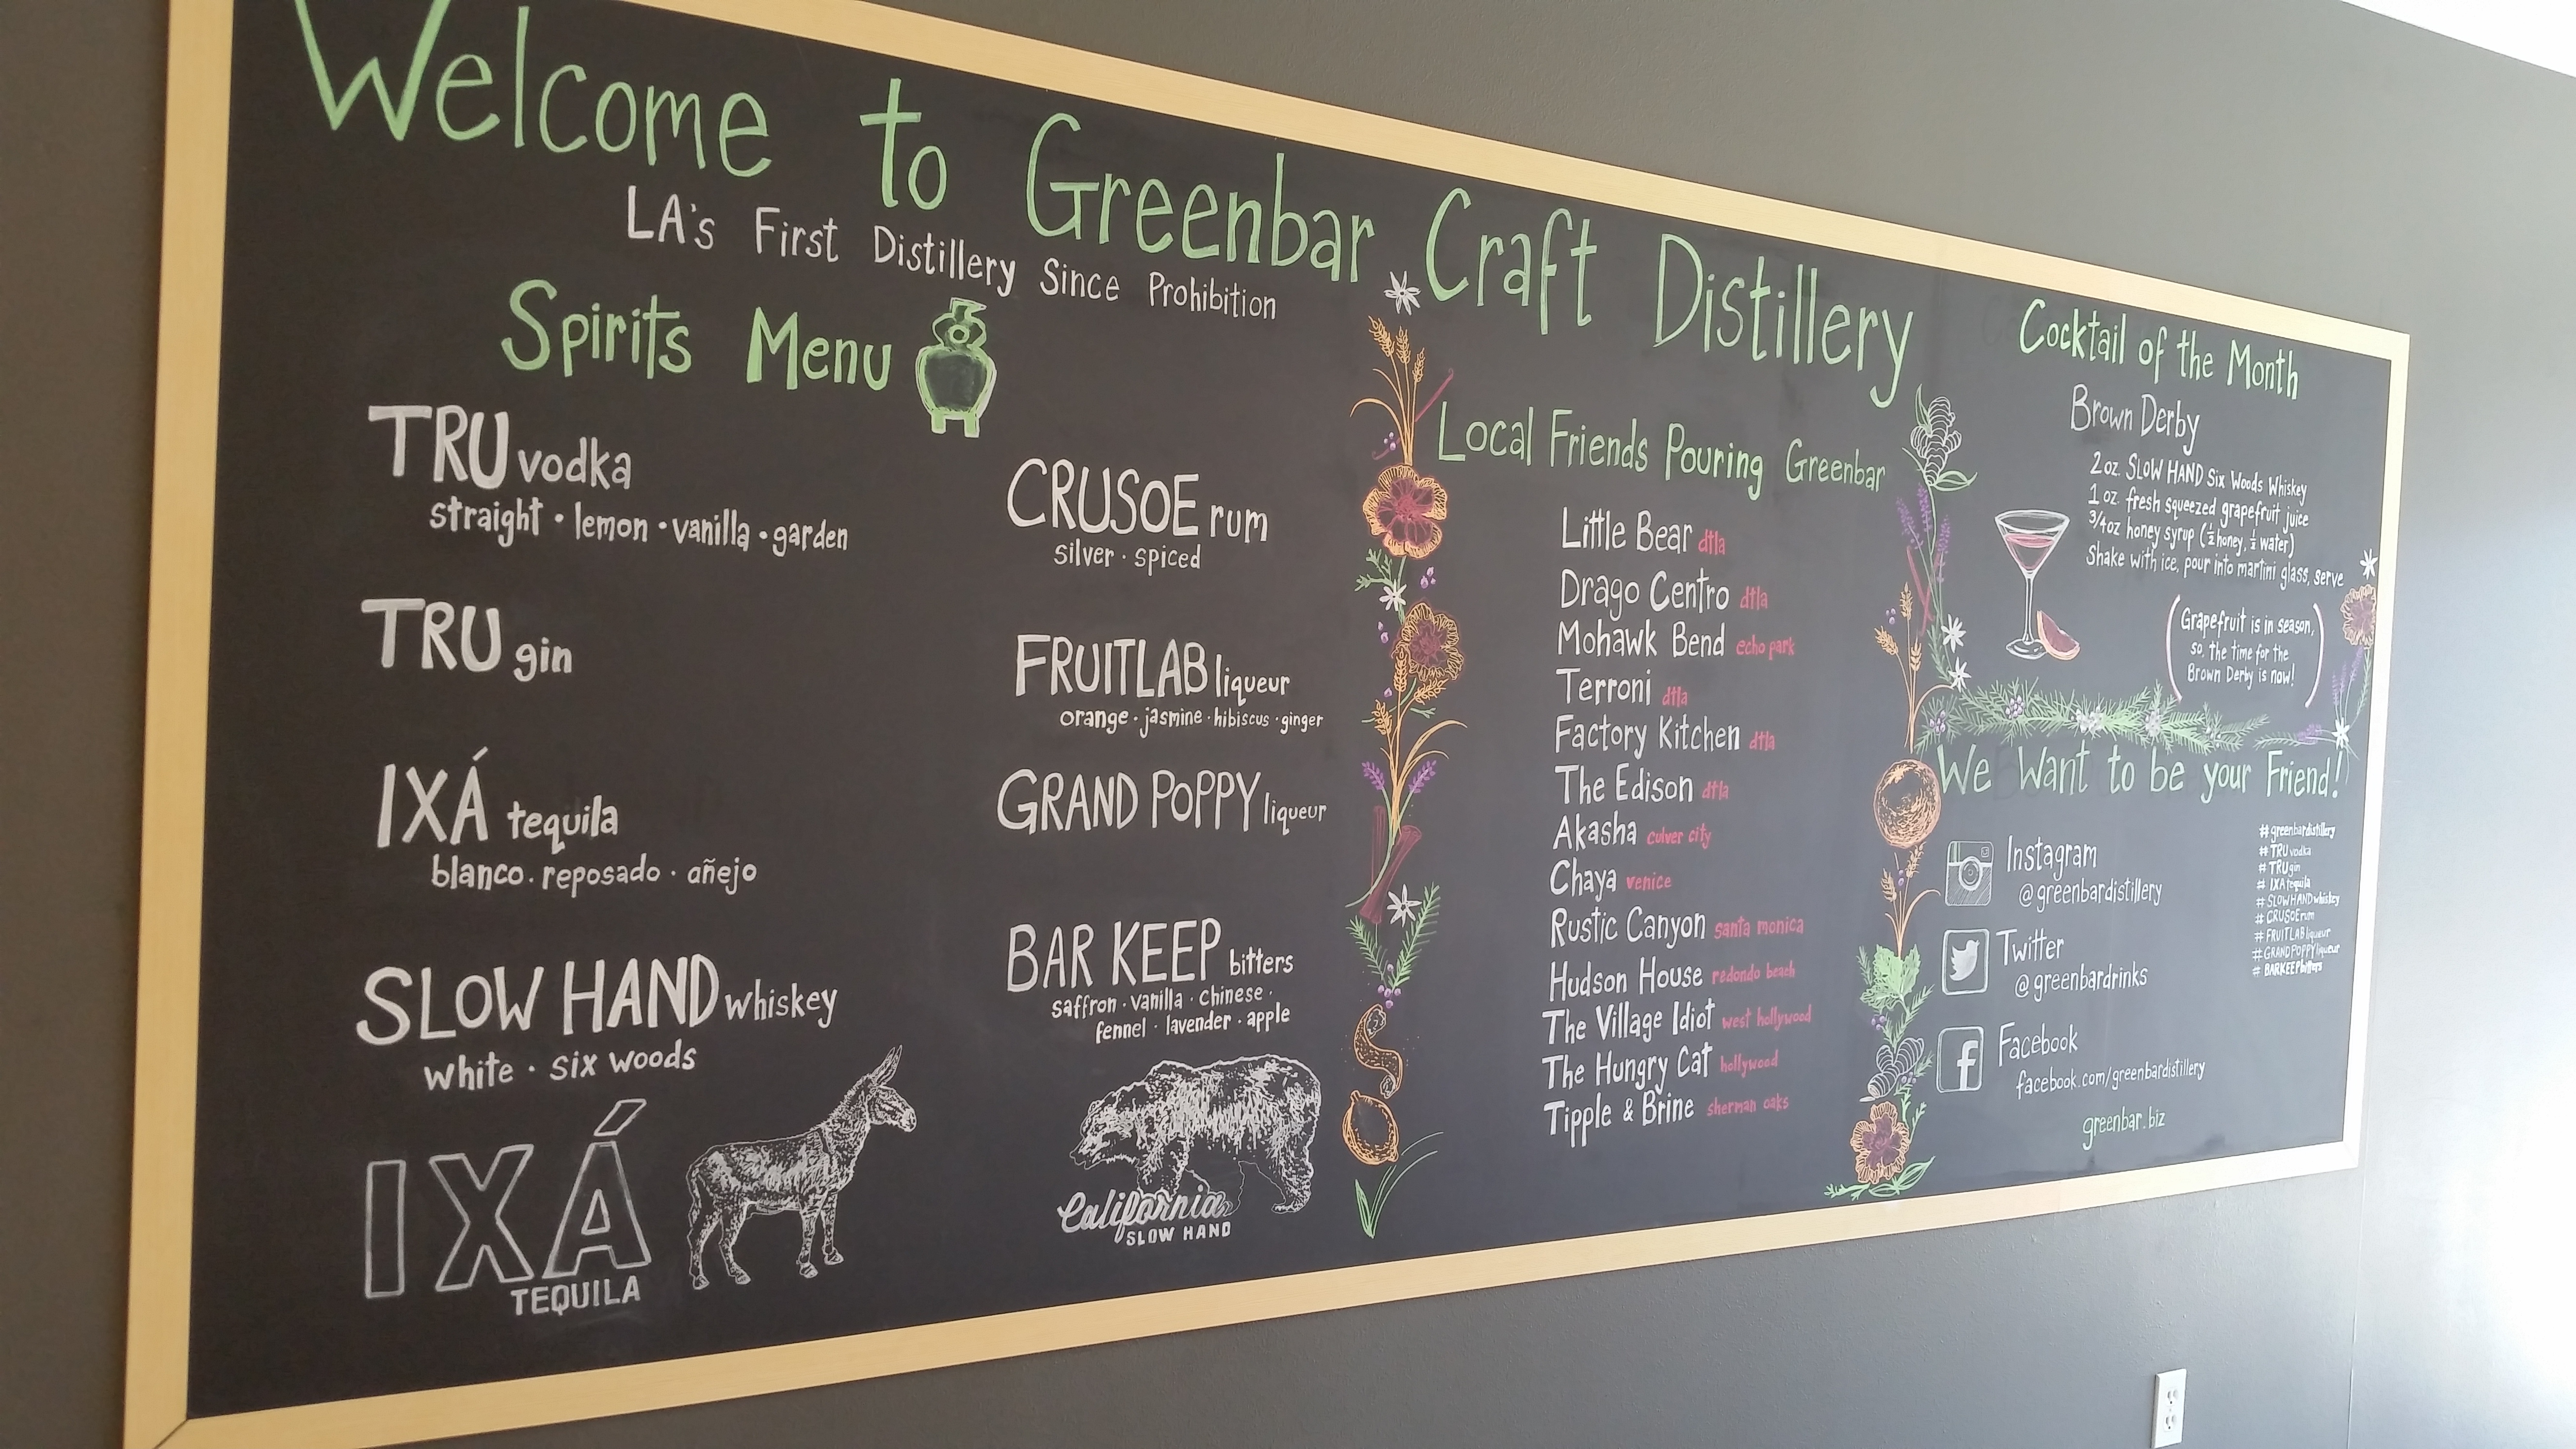 Welcome to Greenbar Craft Distillery
LA's First Distillery Since Prohibition
Spirits Menu
TRU vodka
straight · lemon · vanilla · garden
TRU gin
IXÁ tequila
blanco · reposado · añejo
SLOW HAND whiskey
white · six woods
IXÁ
TEQUILA
CRUSOE rum
silver · spiced
FRUITLAB liqueur
orange · jasmine · hibiscus · ginger
GRAND POPPY liqueur
BAR KEEP bitters
saffron · vanilla · chinese ·
fennel · lavender · apple
California
SLOW HAND
Local Friends Pouring Greenbar
Little Bear dtla
Drago Centro dtla
Mohawk Bend echo park
Terroni dtla
Factory Kitchen dtla
The Edison dtla
Akasha culver city
Chaya venice
Rustic Canyon santa monica
Hudson House redondo beach
The Village Idiot west hollywood
The Hungry Cat hollywood
Tipple & Brine sherman oaks
Cocktail of the Month
Brown Derby
2 oz. SLOW HAND Six Woods Whiskey
1 oz. fresh squeezed grapefruit juice
3/4 oz honey syrup (½ honey, ½ water)
Shake with ice, pour into martini glass, serve
(Grapefruit is in season,
so, the time for the
Brown Derby is now!)
We Want to be your Friend!
Instagram
@greenbardistillery
Twitter
@greenbardrinks
f Facebook
facebook.com/greenbardistillery
greenbar.biz
#greenbardistillery
#TRUvodka
#TRUgin
#IXAtequila
#SLOWHANDwhiskey
#CRUSOErum
#FRUITLABliqueur
#GRANDPOPPYliqueur
#BARKEEPbitters